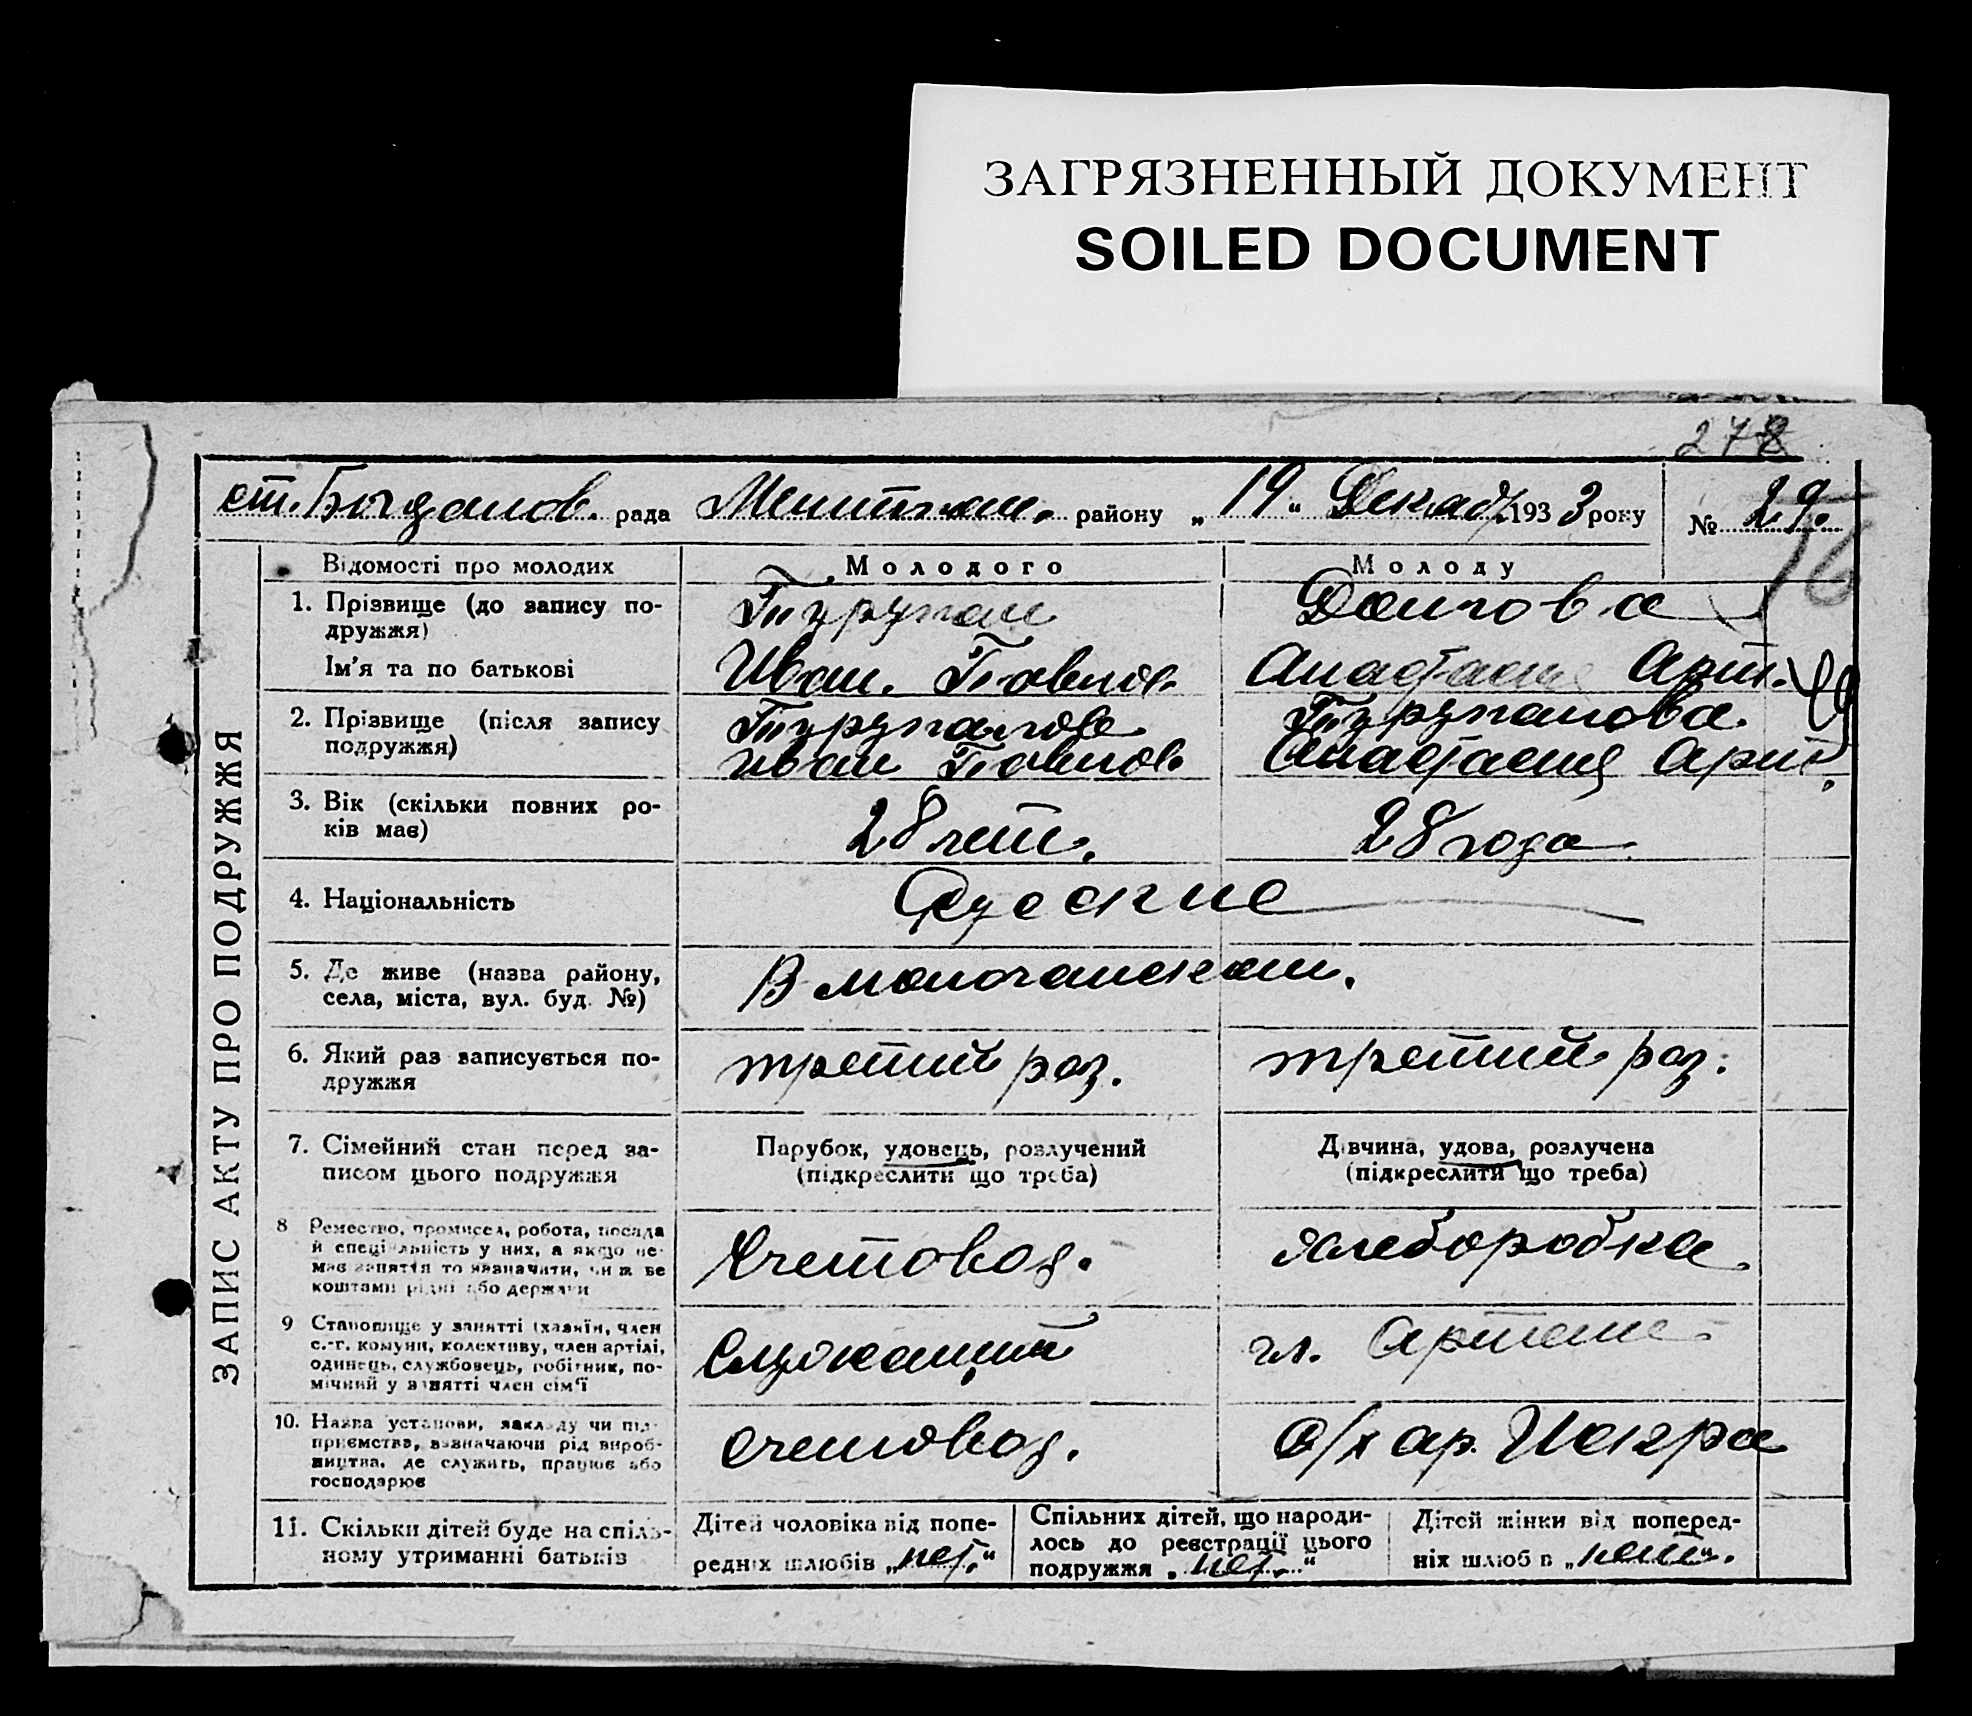 ЗАГРЯЗНЕННЫЙ ДОКУМЕНТ
SOILED DOCUMENT
278
ст. Богданов. рада район у „19“ Декабр. 1933 року № 29.
16
ЗАПИС АКТУ ПРО ПОДРУЖЖЯ
Відомості про молодих Молодого Молоду
1. Прізвище (до запису по-
дружжя)
Ім'я та по батькові
Иван. Павлов. Анастасия Арт.
2. Прізвище (після запису
подружжя)
Турупанова
Иван Павлов. Анастасия Арт.
3. Вік (скільки повних ро-
ків має)
28 лет. 28 года
4. Національність Русские
5. Де живе (назва району,
села, міста, вул. буд. №)
В молочанском.
6. Який раз записується по-
дружжя
третий раз. третий раз.
7. Сімейний стан перед за-
писом цього подружжя
Парубок, удовець, розлучений
(підкреслити що треба)
Дівчина, удова, розлучена
(підкреслити що треба)
8 Ремество, промисел, робота, посада
й спеціяльність у них, а якщо не-
має заняття то зазначити, чиїм
коштами рідні або держави
Счетовод. хлеборобка
9 Становище у занятті (хазяїн, член
с.-г. комуни, колективу, член артілі,
одинець, службовець, робітник, по-
мічний у занятті член сім'ї
Служащий чл. Артели
10. Назва установи, закладу чи під-
приємства, зазначаючи рід вироб-
ництва, де служить, працює або
господарює
счетовод. с/х ар. Искра
11. Скільки дітей буде на спіль-
ному утриманні батьків
Дітей чоловіка від попе-
редніх шлюбів „нет.“
Спільних дітей, що народи-
лось до реєстрації цього
подружжя „нет.“
Дітей жінки від поперед-
ніх шлюбів „нет“.